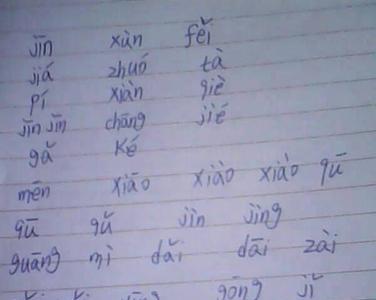 jīn xùn fěi
jiá zhuó tà
pí xiàn qiè
jīn jīn chāng jié
gǎ ké
mēn xiāo xiào xiào qū
qū qǔ jìn jīng
guāng mì dǎi dāi zài
gōng jǐ